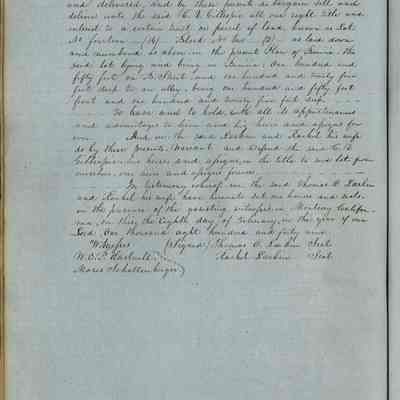 and delivered, and by these presents do bargain sell and
deliver unto the said C. V. Gillespie all our right title and
interest to a certain tract or parcel of land, known as Lot
No fourteen (14) Block No two (2) as laid down
and numbered as above in the present Plan of Benicia. the
said Lot lying and being in Benicia; One hundred and
fifty feet on B. Street and one hundred and twenty five
feet deep to an alley, being one hundred and fifty feet
front and one hundred and twenty five feet deep.
To have and to hold, with all its appurtenances
and advantages to him and his heirs and assigns for
ever. And we the said Larkin and Rachel his wife
do by these presents, Warrant and defend the said C. V.
Gillespie his heirs and assigns, in the title to said lot from
ourselves, our heirs and assigns forever
In testimony whereof we the said Thomas O. Larkin
and Rachel his wife have hereunto set our hands and seals
in the presence of the subscribing witnesses in Monterey Califor-
nia, on this the Eighth day of February, in the year of our
Lord One thousand eight hundred and forty nine
Witnesses (Signed) Thomas O. Larkin Seal
W. E. P. Hartnell Rachel Larkin Seal
Moses Schallenberger